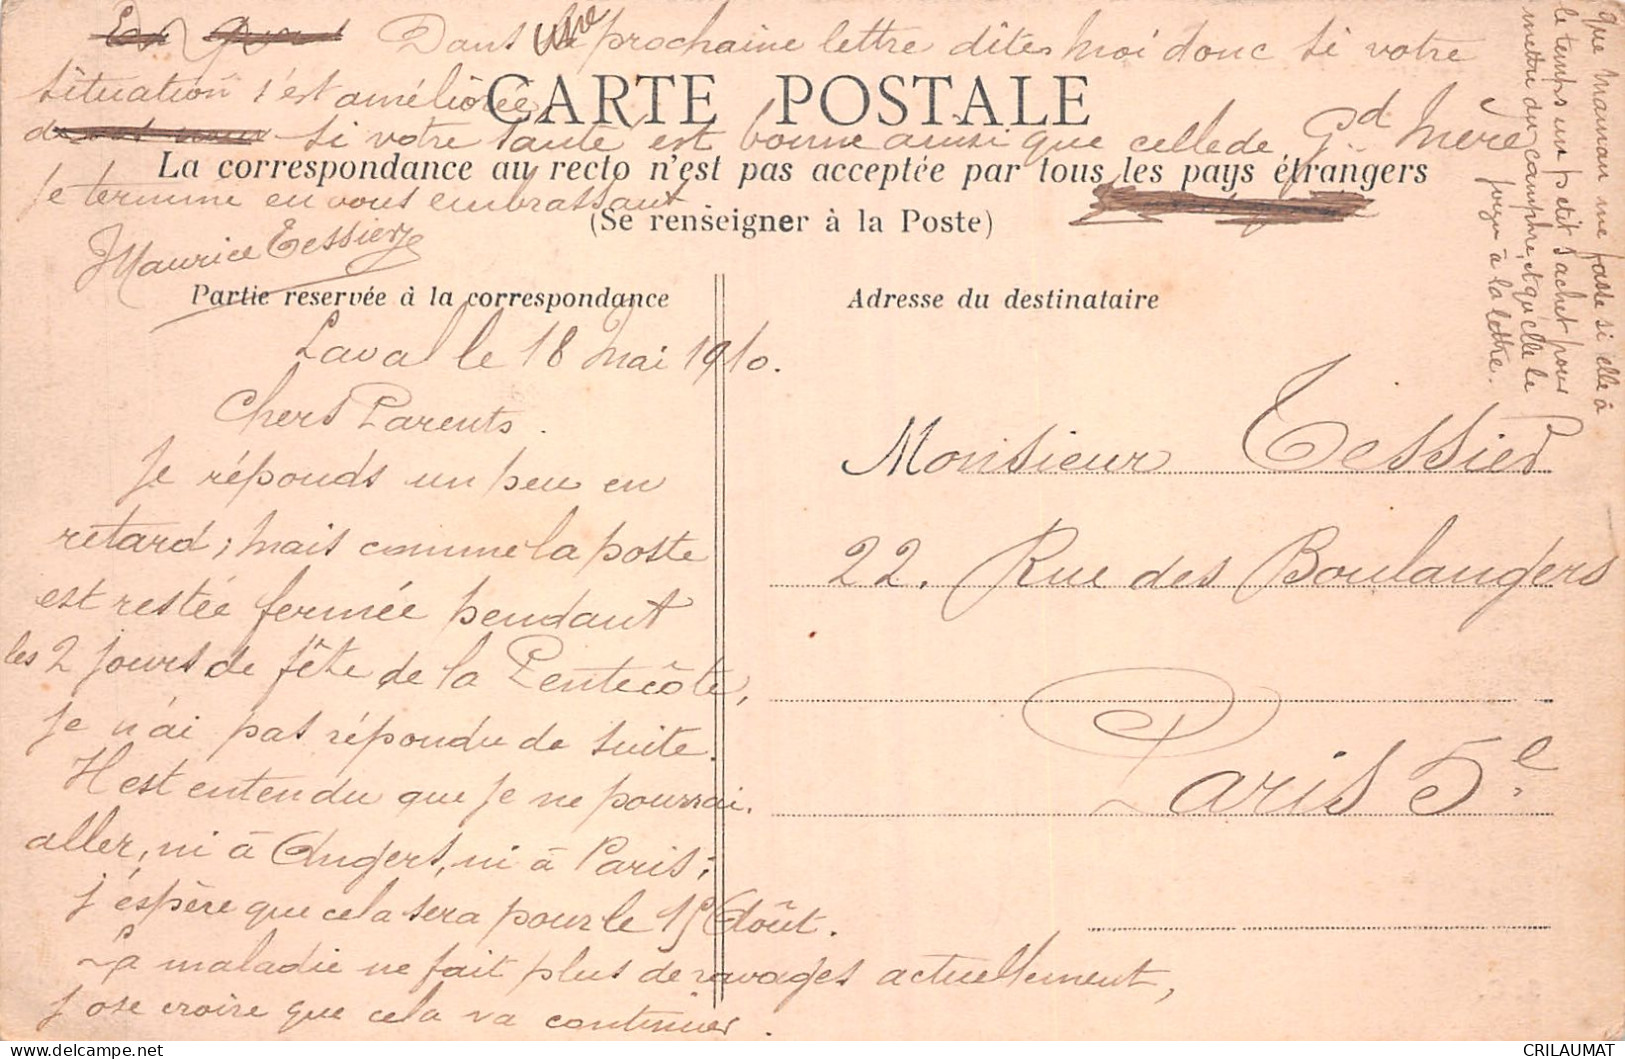 Dans votre prochaine lettre dites moi donc si votre
situation s'est améliorée,
CARTE POSTALE
si votre santé est bonne ainsi que celle de Gd Mère
La correspondance au recto n'est pas acceptée par tous les pays étrangers
Je termine en vous embrassant
(Se renseigner à la Poste)
Maurice Tessier
Partie reservée à la correspondance
Laval le 18 Mai 1910.
Chers Parents.
Je réponds un peu en
retard; mais comme la poste
est restée fermée pendant
les 2 jours de fête de la Pentecôte,
je n'ai pas répondu de suite.
Il est entendu que je ne pourrai
aller, ni à Angers, ni à Paris;
j'éspère que cela sera pour le 15 Août.
La maladie ne fait plus de ravages actuellement,
j'ose croire que cela va continuer.
Adresse du destinataire
Monsieur Tessier
22, Rue des Boulangers
Paris 5e
que Maman me fasse si elle a
le temps un petit sachet pour
mettre du camphre, et qu'elle le
à la lettre.
CRILAUMAT